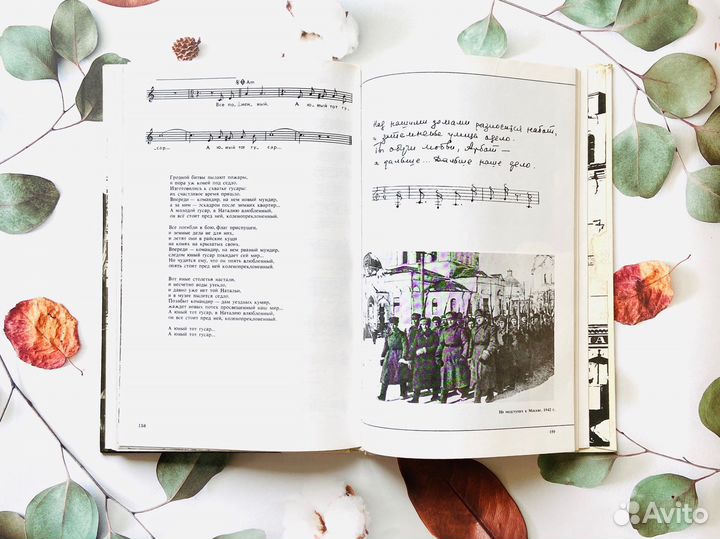 Am
Все по, _ мен, ный. А ю, ный тот гу,
_сар... А ю, ный тот гу, сар...
Грозной битвы пылают пожары,
и пора уж коней под седло.
Изготовились к схватке гусары:
их счастливое время пришло.
Впереди — командир, на нем новый мундир,
а за ним — эскадрон после зимних квартир...
А молодой гусар, в Наталию влюбленный,
он все стоит пред ней, коленопреклоненный.
Все погибли в бою, флаг приспущен,
и земные дела не для них,
и летят они в райские кущи
на конях на крылатых своих.
Впереди — командир, на нем рваный мундир,
следом юный гусар покидает сей мир...
Но чудится ему, что он опять влюбленный,
опять стоит пред ней коленопреклоненный.
Вот иные столетья настали,
и несчетно воды утекло,
и давно уже нет той Натальи,
и в музее пылится седло.
Позабыт командир — дам уездных кумир,
жаждет новых потех просвещенный наш мир...
А юный тот гусар, в Наталию влюбленный,
он все стоит пред ней, коленопреклоненный.
А юный тот гусар...
А юный тот гусар...
158
Над нашими домами разносится набат,
и затемненье улицы одело.
Ты обучи любви, Арбат —
а дальше... Дальше наше дело.
На подступах к Москве. 1942 г.
159
Avito